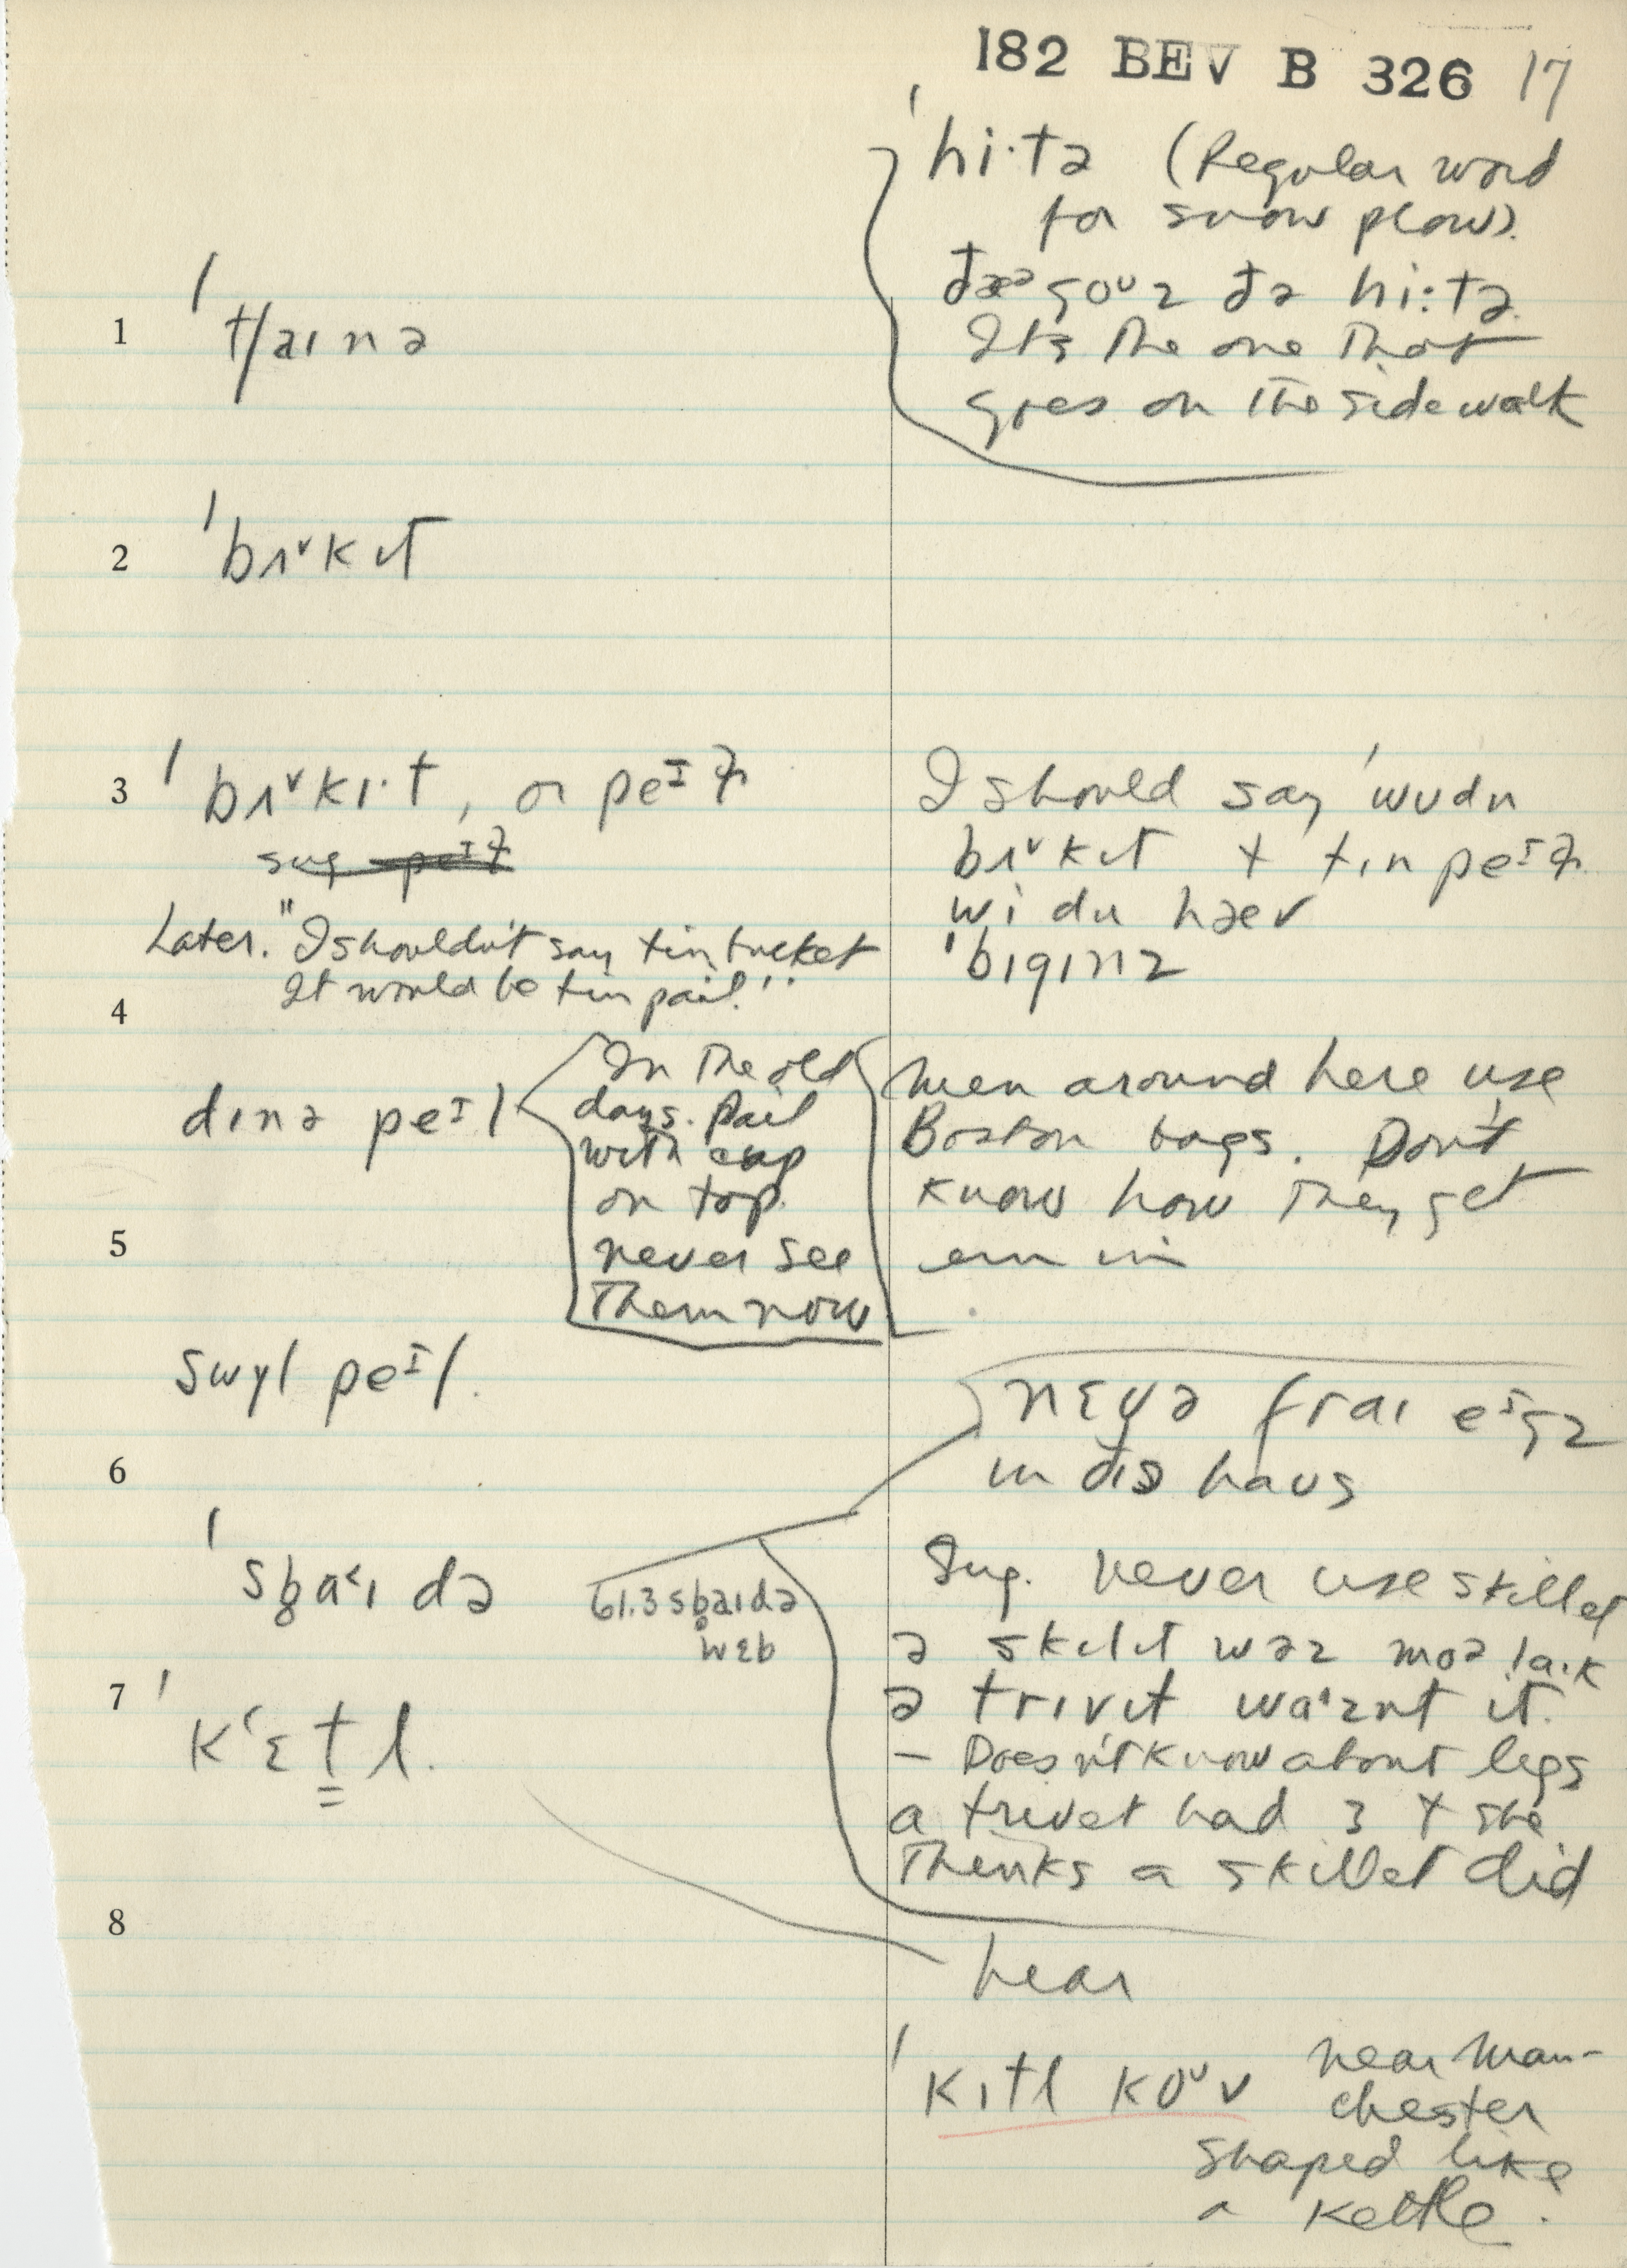 182 BEV B 326 17
hi·tə (Regular word
for snow plow).
ðæə goᶷz ðə hi:tə.
Its the one that
goes on the sidewalk
1 tʃaɪnə
2 bʌ˅kɪt
3 bʌ˅kɪ·t, or peᴵɫ
sug peᴵɫ
Later. "I shouldn't say tin bucket
It would be tin pail."
I should say 'wudn
bʌ˅kɪt + tɪn peᴵɫ
wi du hæv
'bɪgɪnz
4
dɪnə peᴵl
In the old
days. Pail
with cup
on top.
never see
them now
men around here use
Boston bags. Don't
know how they get
em in
5
swɪl peᴵl.
nɛvə fraɪ eᴵgz
ɪn ðɪs haus
6
sb̥a˂ɪdə
61.3 sb̥aɪdə
wɛb
Sug. never use skillet
ə skɪlɪt wəz moə laɪk
ə trɪvɪt wa'znt ɪt.
— Doesn't know about legs
a trivet had 3 + she
Thinks a skillet did
7 kʻɛtl.
8
hear
kɪtl koᶷv near Man-
chester
shaped like
a kettle.